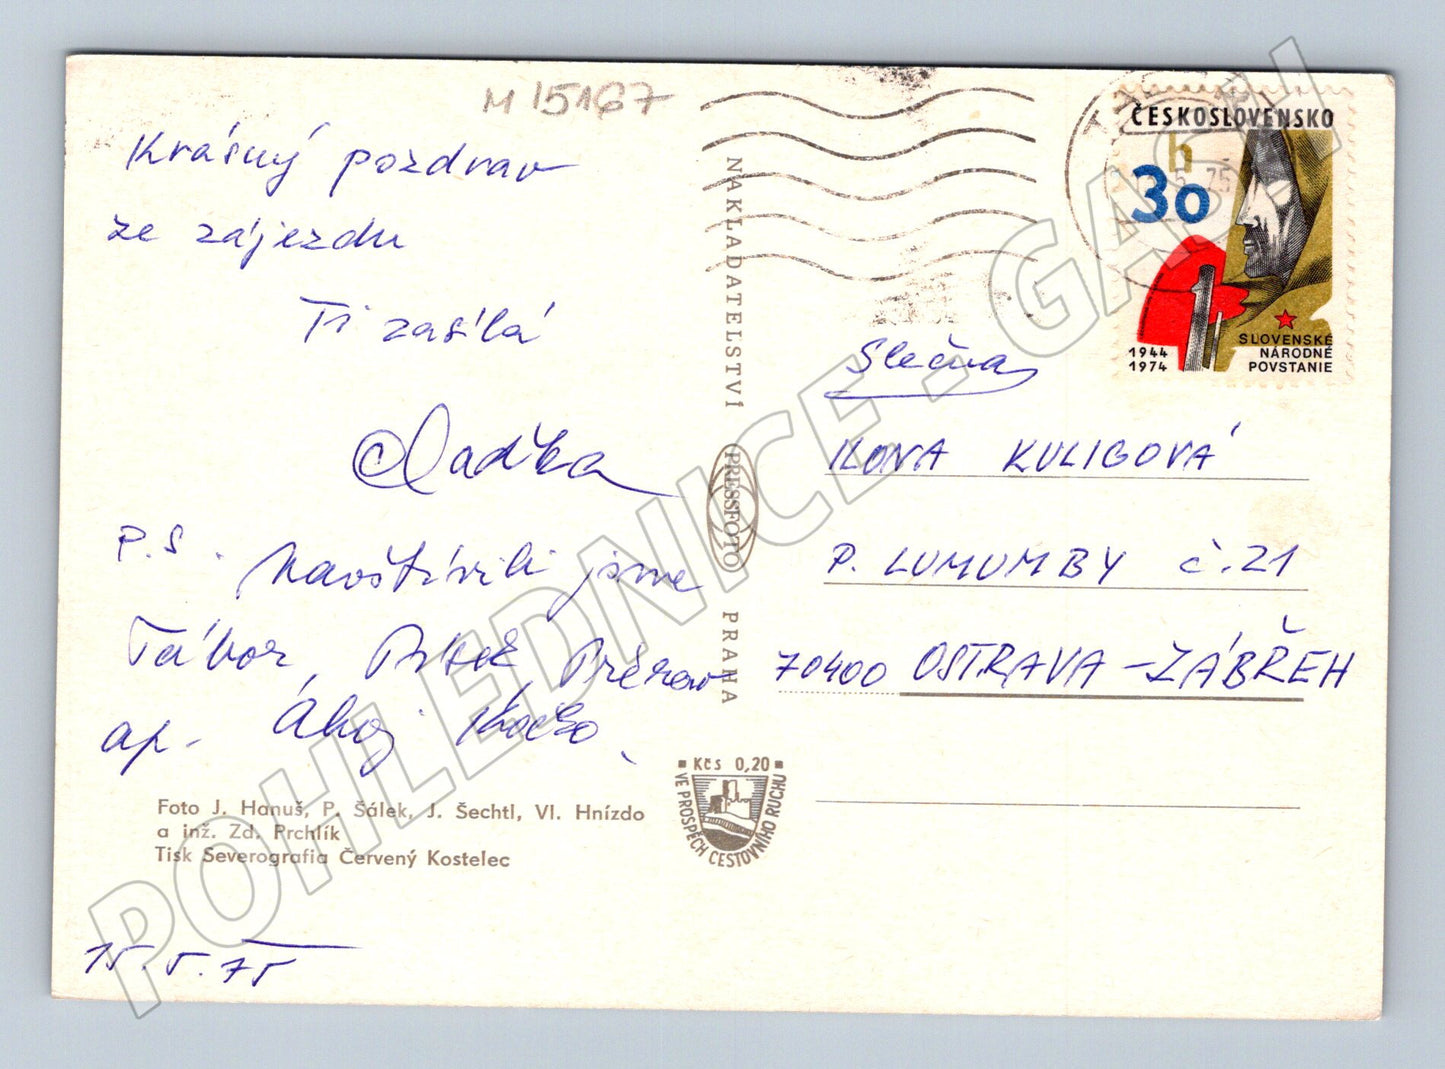 M 15167
Krásný pozdrav
ze zájezdu
Ti zasílá
Ladka
P.S. Navštívili jsme
Tábor, Písek
ap. Ahoj
Foto J. Hanuš, P. Šálek, J. Šechtl, Vl. Hnízdo
a inž. Zd. Prchlík
Tisk Severografia Červený Kostelec
15.5.75
NAKLADATELSTVÍ
PRESSFOTO
PRAHA
Kčs 0,20
VE PROSPĚCH CESTOVNÍHO RUCHU
ČESKOSLOVENSKO
h
30
1944
1974
SLOVENSKÉ
NÁRODNÉ
POVSTANIE
Slečna
ILONA KULIGOVÁ
P. LUMUMBY č. 21
70400 OSTRAVA - ZÁBŘEH
POHLEDNICE - GASH